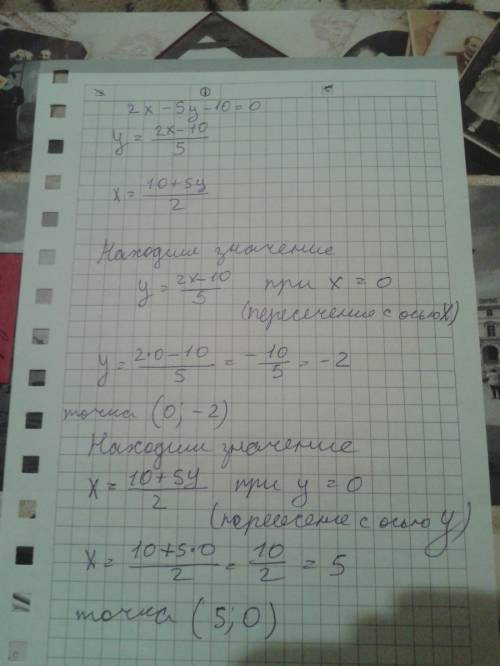 ①
2x - 5y - 10 = 0
y = \frac{2x-10}{5}
x = \frac{10+5y}{2}
Находим значение
y = \frac{2x-10}{5} при x = 0
(пересечение с осью X)
y = \frac{2·0-10}{5} = -\frac{10}{5} = -2
точка (0; -2)
Находим значение
x = \frac{10+5y}{2} при y = 0
(пересение с осью y)
x = \frac{10+5·0}{2} = \frac{10}{2} = 5
точка (5; 0)